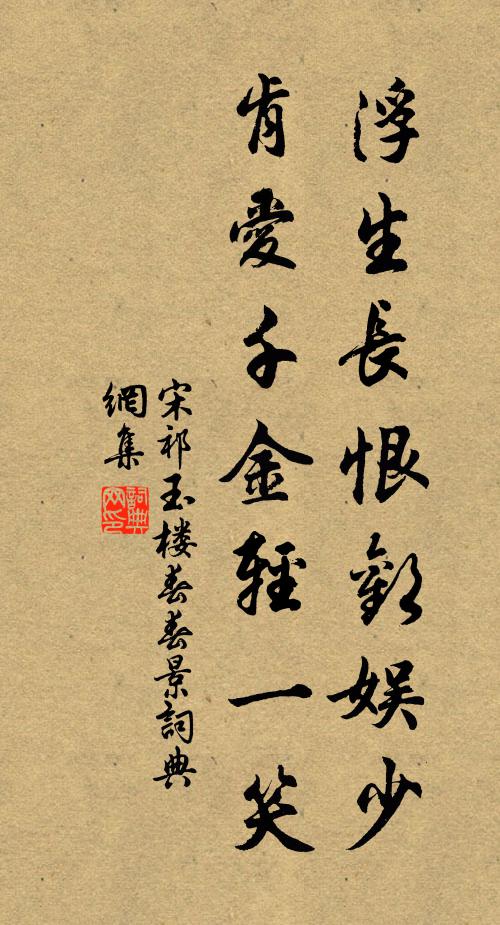 浮生長恨歡娛少
肯愛千金輕一笑
宋祁玉楼春春景詞典
網集
詞典
网印